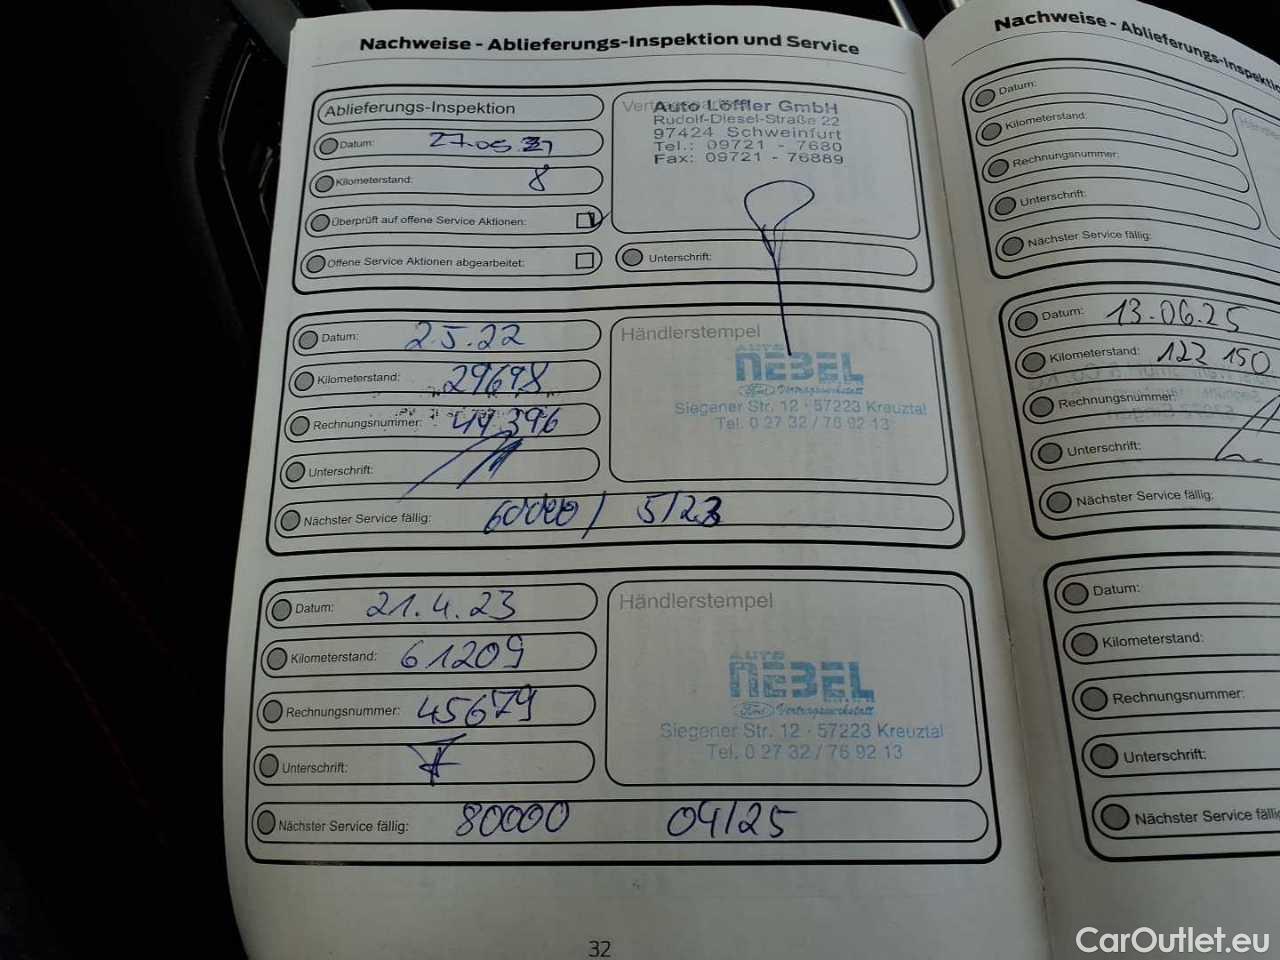 Nachweise - Ablieferungs-Inspektion und Service
Ablieferungs-Inspektion
Datum: 27.05.21
Kilometerstand: 8
Überprüft auf offene Service Aktionen:
Offene Service Aktionen abgearbeitet:
Auto Löffler GmbH
Rudolf-Diesel-Straße 22
97424 Schweinfurt
Tel.: 09721 - 7680
Fax: 09721 - 76889
Unterschrift:
Datum: 2.5.22
Kilometerstand: 29698
Rechnungsnummer: 44396
Unterschrift:
Nächster Service fällig: 60000 / 5/23
Händlerstempel
AUTO
NEBEL
Ford Vertragswerkstatt
Siegener Str. 12 · 57223 Kreuztal
Tel. 0 27 32 / 76 92 13
Datum: 21.4.23
Kilometerstand: 61209
Rechnungsnummer: 45679
Unterschrift:
Nächster Service fällig: 80000 04/25
Händlerstempel
AUTO
NEBEL
Ford Vertragswerkstatt
Siegener Str. 12 · 57223 Kreuztal
Tel. 0 27 32 / 76 92 13
32
Nachweise - Ablieferungs-Inspektio
Datum:
Kilometerstand:
Rechnungsnummer:
Unterschrift:
Nächster Service fällig:
Datum: 13.06.25
Kilometerstand: 122 150
Rechnungsnummer:
Unterschrift:
Nächster Service fällig:
Datum:
Kilometerstand:
Rechnungsnummer:
Unterschrift:
Nächster Service fällig
CarOutlet.eu